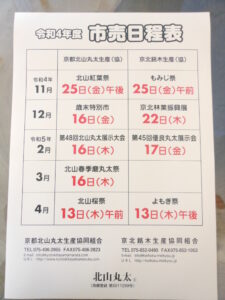 令和4年度 市売日程表
京都北山丸太生産(協) 京北銘木生産(協)
令和4年 11月 北山紅葉祭 25日(金)午後 もみじ祭 25日(金)午前
12月 歳末特別市 16日(金) 京北林業振興展 22日(木)
令和5年 2月 第48回北山丸太展示大会 16日(木) 第45回優良丸太展示会 17日(金)
3月 北山春季磨丸太祭 16日(木)
4月 北山桜祭 13日(木)午前 よもぎ祭 13日(木)午後
京都北山丸太生産協同組合 京北銘木生産協同組合
北山丸太